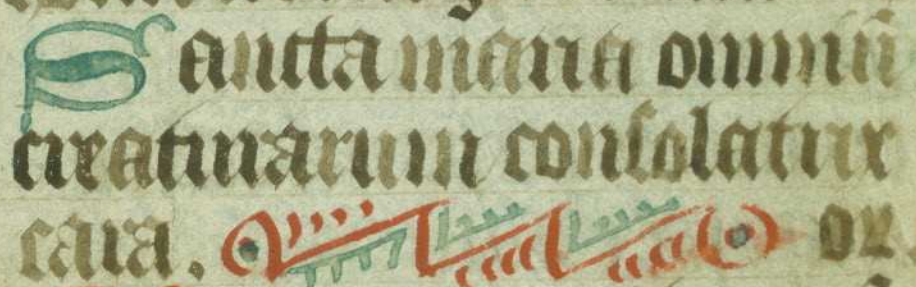 Sancta maria omniū
creaturarum consolatrix
cara. or